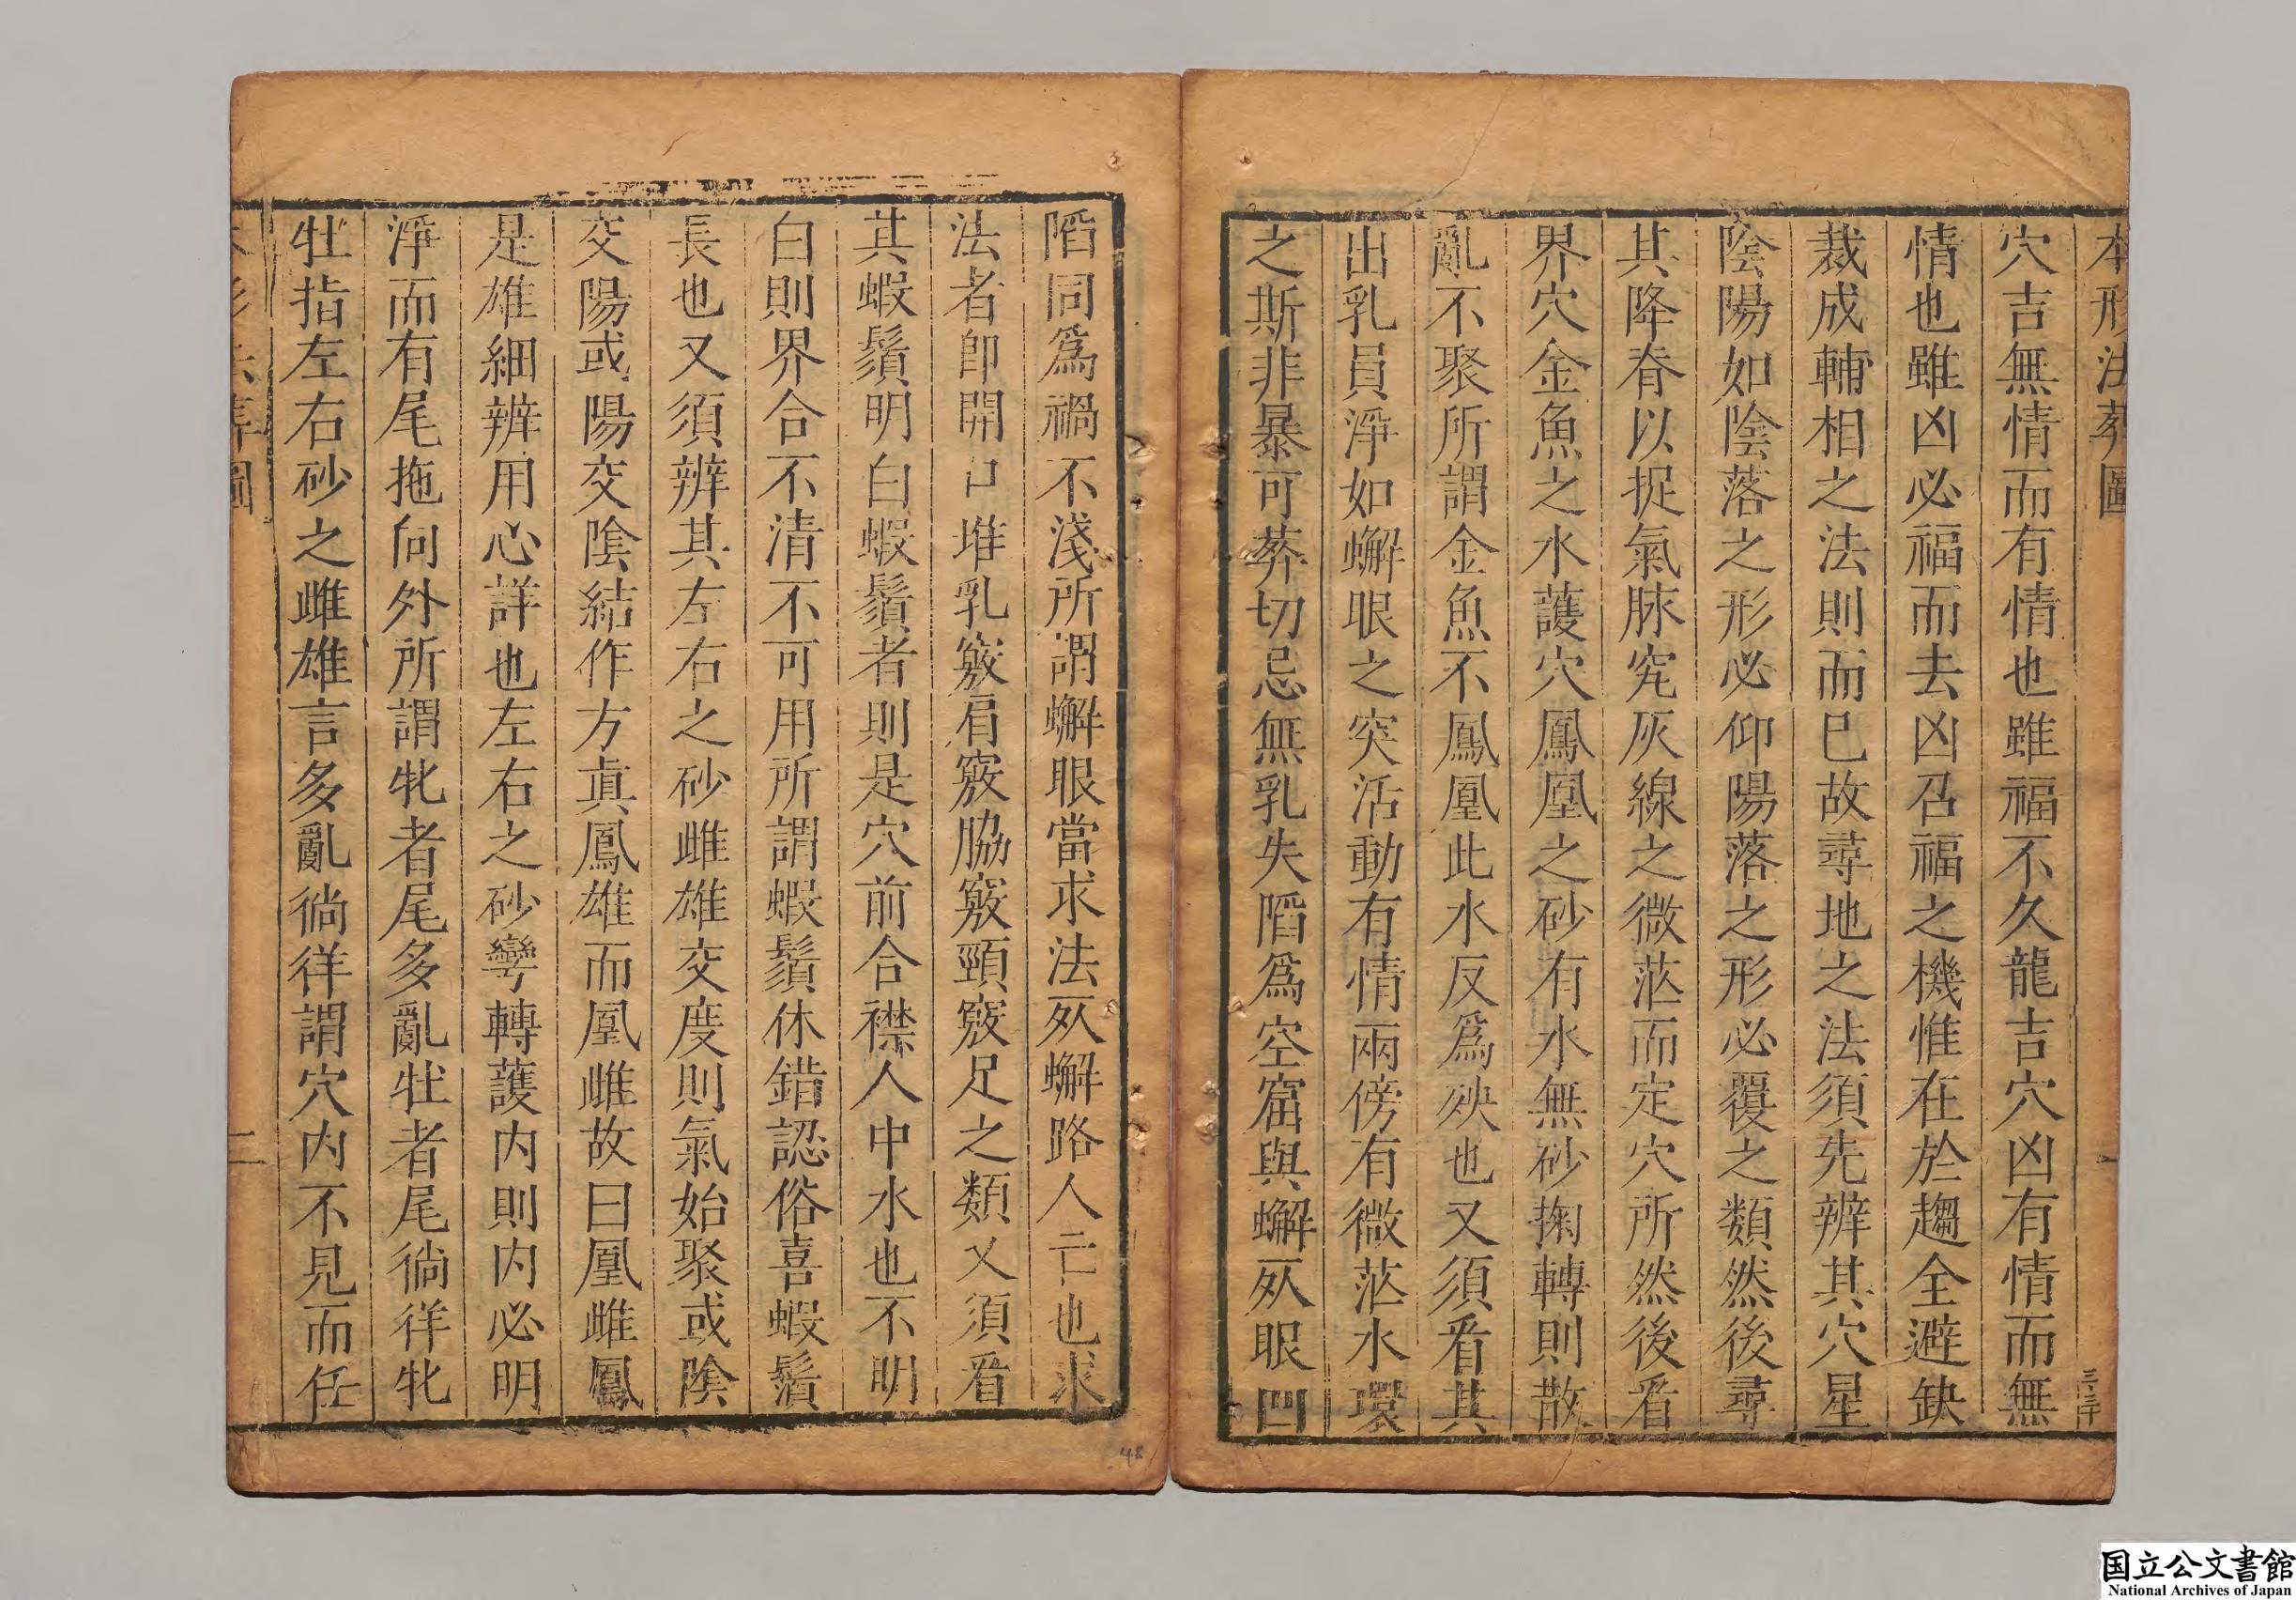 本形法葬圖
穴吉無情而有情也雖福不久龍吉穴凶有情而無
情也雖凶必福而去凶召福之機惟在於趨全避缺
裁成輔相之法則而巳故尋地之法須先辨其穴星
陰陽如陰落之形必仰陽落之形必覆之類然後尋
其降脊以捉氣脉究灰線之微茫而定穴所然後看
界穴金魚之水護穴鳳凰之砂有水無砂掬轉則散
亂不聚所謂金魚不鳳凰此水反爲殃也又須看其
出乳員淨如蠏眼之突活動有情兩傍有微茫水環
之斯非暴可葬切忌無乳失陷爲空窟與蠏㱙眼凹
陷同爲禍不淺所謂蠏眼當求法㱙蠏路人亡也求
法者卽開口堆乳竅肩竅脇竅頸竅足之類又須看
其蝦鬚明白蝦鬚者則是穴前合襟人中水也不明
白則界合不清不可用所謂蝦鬚休錯認俗喜蝦鬚
長也又須辨其左右之砂雌雄交度則氣始聚或陰
交陽或陽交陰結作方眞鳳雄而凰雌故曰凰雌鳳
是雄細辨用心詳也左右之砂彎轉護内則内必明
淨而有尾拖向外所謂牝者尾多亂牡者尾徜徉牝
牡指左右砂之雌雄言多亂徜徉謂穴内不見而任
二
48
国立公文書館
National Archives of Japan